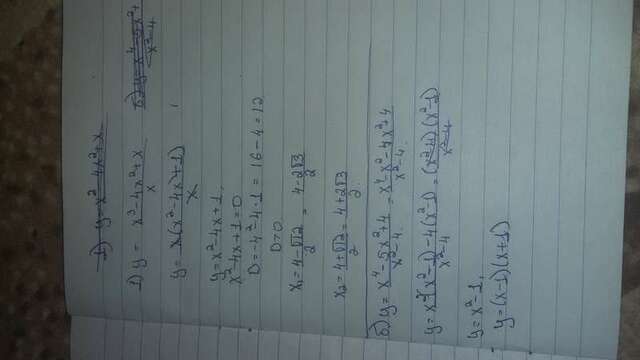 1) y = x² 4x² + x
1) y = x³ - 4x² + x / x б) y = x⁴ - 5x² + / x² - 4
y = x(x² - 4x + 1) / x
y = x² - 4x + 1,
x² - 4x + 1 = 0
D = -4² - 4·1 = 16 - 4 = 12
D > 0
x₁ = 4 - √12 / 2 = 4 - 2√3 / 2
x₂ = 4 + √12 / 2 = 4 + 2√3 / 2
б) y = x⁴ - 5x² + 4 / x² - 4 = x⁴ - x² - 4x² + 4 / x² - 4
y = x²(x² - 1) - 4(x² - 1) / x² - 4 = (x² - 4)(x² - 1) / x² - 4
y = x² - 1,
y = (x - 1)(x + 1)